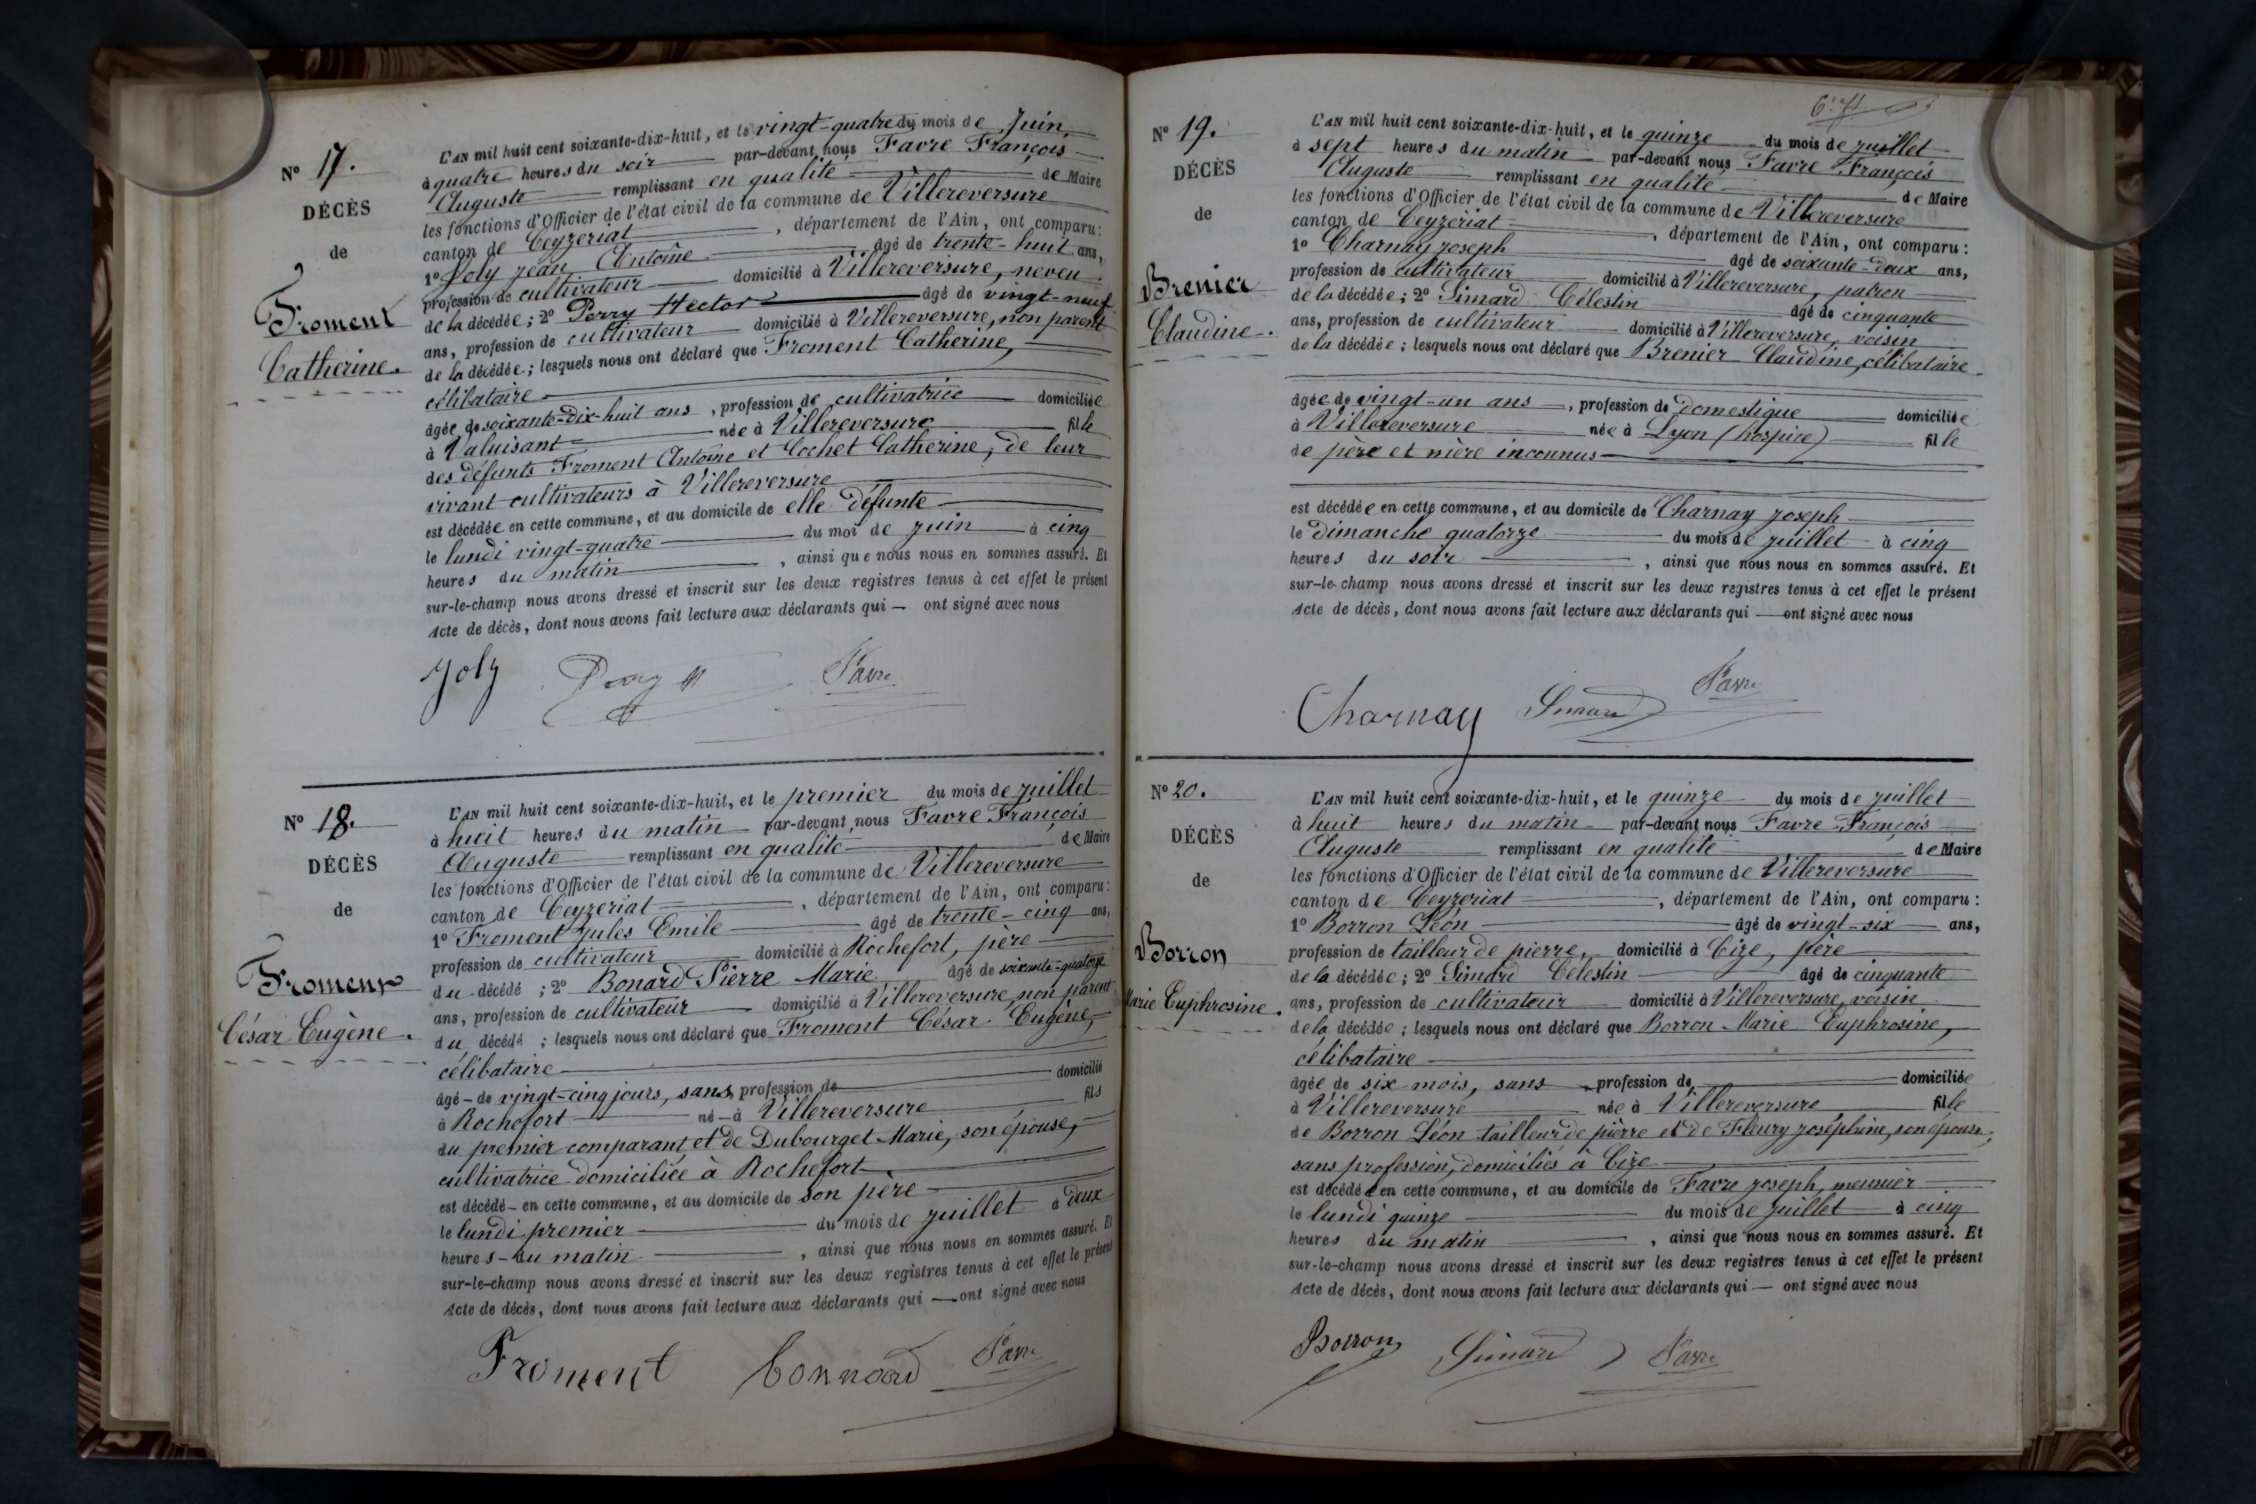 N° 17.
DÉCÈS
de
Froment
Catherine.
L'AN mil huit cent soixante-dix-huit, et le vingt-quatre du mois de Juin,
à quatre heures du soir par-devant nous Favre François
Auguste remplissant en qualité de Maire
les fonctions d'Officier de l'état civil de la commune de Villereversure
canton de Ceyzeriat, département de l'Ain, ont comparu:
1° Joly Jean Antoine âgé de trente-huit ans,
profession de cultivateur domicilié à Villereversure, neveu
de la décédée; 2° Perry Hector âgé de vingt-neuf
ans, profession de cultivateur domicilié à Villereversure, non parent
de la décédée; lesquels nous ont déclaré que Froment Catherine,
célibataire
âgée de soixante-dix-huit ans, profession de cultivatrice domiciliée
à Valuisant née à Villereversure fille
des défunts Froment Antoine et Cochet Catherine, de leur
vivant cultivateurs à Villereversure
est décédée en cette commune, et au domicile de elle défunte
le lundi vingt-quatre du moi de juin à cinq
heures du matin, ainsi que nous nous en sommes assuré. Et
sur-le-champ nous avons dressé et inscrit sur les deux registres tenus à cet effet le présent
Acte de décès, dont nous avons fait lecture aux déclarants qui — ont signé avec nous
Joly Perry H Favre
N° 18.
DÉCÈS
de
Froment
César Eugène.
L'AN mil huit cent soixante-dix-huit, et le premier du mois de juillet
à huit heures du matin par-devant nous Favre François
Auguste remplissant en qualité de Maire
les fonctions d'Officier de l'état civil de la commune de Villereversure
canton de Ceyzeriat, département de l'Ain, ont comparu:
1° Froment Jules Emile âgé de trente-cinq ans,
profession de cultivateur domicilié à Rochefort, père
du décédé; 2° Bonard Pierre Marie âgé de soixante-quatorze
ans, profession de cultivateur domicilié à Villereversure, non parent
du décédé; lesquels nous ont déclaré que Froment César Eugène,
célibataire
âgé - de vingt-cinq jours, sans profession de domicilié
à Rochefort né - à Villereversure fils
du premier comparant et de Dubourget Marie, son épouse,
cultivatrice domiciliée à Rochefort
est décédé - en cette commune, et au domicile de son père
le lundi premier du mois de juillet à deux
heures - du matin, ainsi que nous nous en sommes assuré. Et
sur-le-champ nous avons dressé et inscrit sur les deux registres tenus à cet effet le présent
Acte de décès, dont nous avons fait lecture aux déclarants qui — ont signé avec nous
Froment bonnard Favre
N° 19.
DÉCÈS
de
Brenier
Claudine.
L'AN mil huit cent soixante-dix-huit, et le quinze du mois de juillet
à sept heures du matin par-devant nous Favre François
Auguste remplissant en qualité de Maire
les fonctions d'Officier de l'état civil de la commune de Villereversure
canton de Ceyzériat, département de l'Ain, ont comparu:
1° Charnay Joseph âgé de soixante-deux ans,
profession de cultivateur domicilié à Villereversure, patron
de la décédée; 2° Simard Célestin âgé de cinquante
ans, profession de cultivateur domicilié à Villereversure, voisin
de la décédée; lesquels nous ont déclaré que Brenier Claudine, célibataire
âgée de vingt-un ans, profession de domestique domiciliée
à Villereversure née à Lyon (hospice) fille
de père et mère inconnus
est décédée en cette commune, et au domicile de Charnay Joseph
le dimanche quatorze du mois de juillet à cinq
heures du soir, ainsi que nous nous en sommes assuré. Et
sur-le-champ nous avons dressé et inscrit sur les deux registres tenus à cet effet le présent
Acte de décès, dont nous avons fait lecture aux déclarants qui — ont signé avec nous
Charnay Simard Favre
N° 20.
DÉCÈS
de
Borron
Marie Euphrosine.
L'AN mil huit cent soixante-dix-huit, et le quinze du mois de juillet
à huit heures du matin par-devant nous Favre François
Auguste remplissant en qualité de Maire
les fonctions d'Officier de l'état civil de la commune de Villereversure
canton de Ceyzeriat, département de l'Ain, ont comparu:
1° Borron Léon âgé de vingt-six ans,
profession de tailleur de pierre, domicilié à Cize, père
de la décédée; 2° Simard Célestin âgé de cinquante
ans, profession de cultivateur domicilié à Villereversure, voisin
de la décédée; lesquels nous ont déclaré que Borron Marie Euphrosine,
célibataire
âgée de six mois, sans profession de domiciliée
à Villereversure née à Villereversure fille
de Borron Léon tailleur de pierre et de Fleury Joséphine, son épouse,
sans profession, domiciliés à Cize
est décédée en cette commune, et au domicile de Favre Joseph, meunier
le lundi quinze du mois de juillet à cinq
heures du matin, ainsi que nous nous en sommes assuré. Et
sur-le-champ nous avons dressé et inscrit sur les deux registres tenus à cet effet le présent
Acte de décès, dont nous avons fait lecture aux déclarants qui — ont signé avec nous
Borron Simard Favre